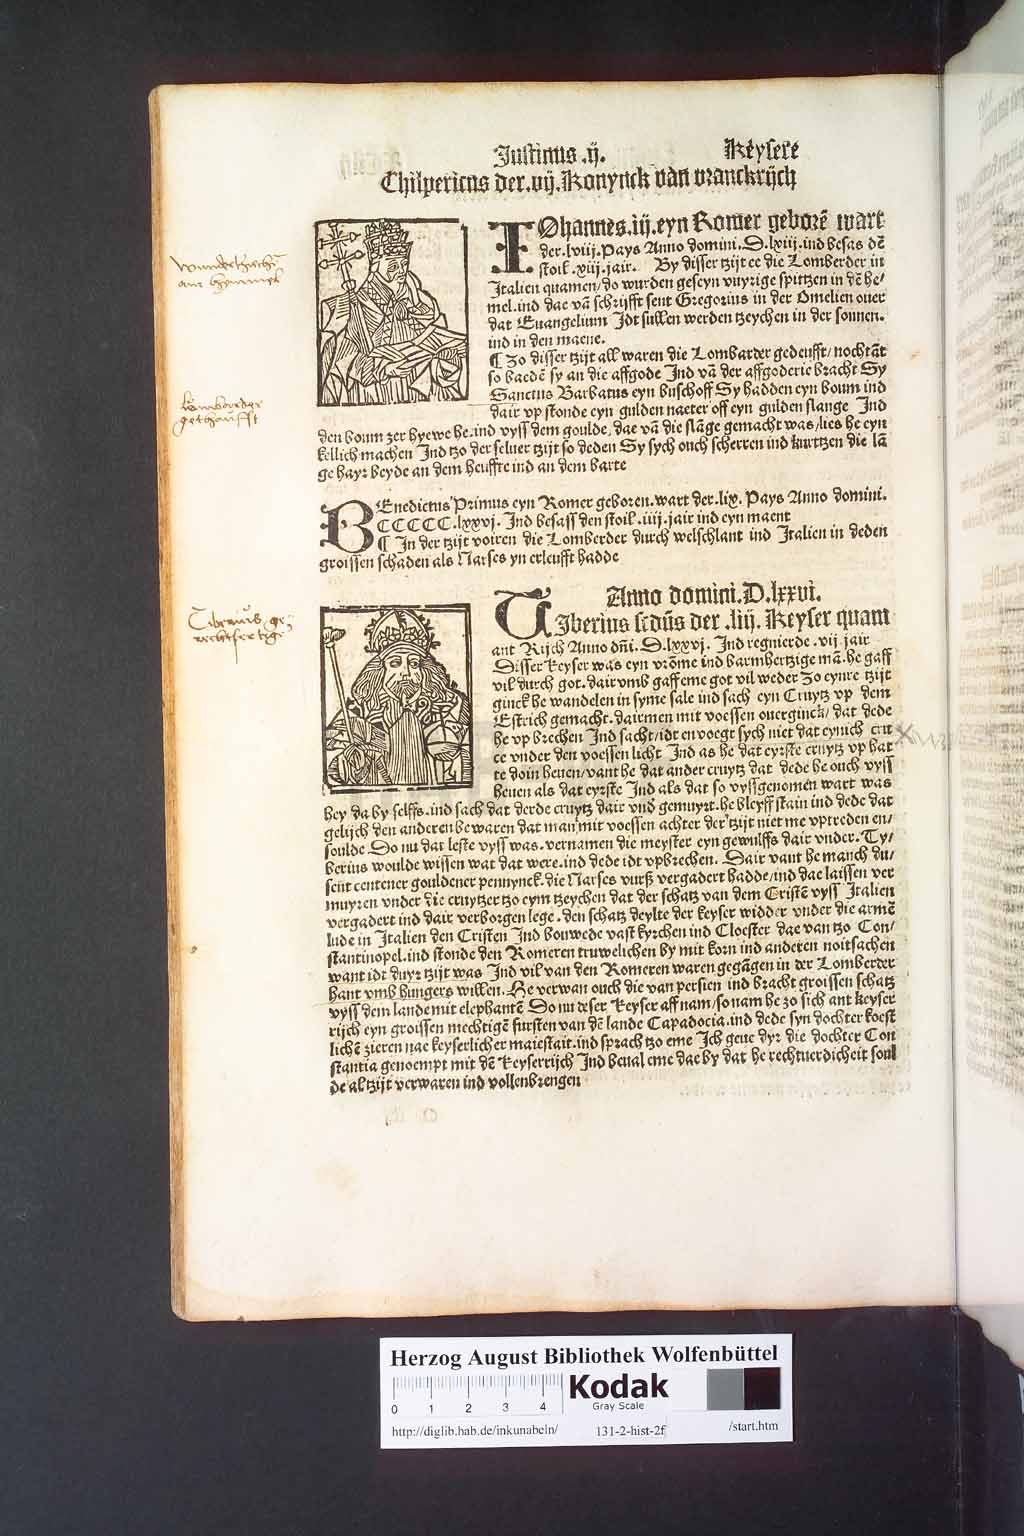 Justinus .ij. Keysere
Chilpericus der .vij. Konynck van vranckrijch
IOhannes .iij. eyn Romer geborē wart
der .lviij. Pays Anno domini .D.lxiij. ind besas dē
stoil .xiij. jair. By disser tzijt ee die Lomberder in
Italien quamen/ do wurden geseyn vuyrige spittzen in dē he/
mel. ind dae vā schrijfft sent Gregorius in der Omelien ouer
dat Euangelium Idt sullen werden tzeychen in der sonnen.
ind in den maene.
¶ Zo disser tzijt all waren die Lombarder gedeufft/ nochtāt
so baedē sy an die affgode Ind vā der affgoderie bracht Sy
Sanctus Barbatus eyn buschoff Sy hadden eyn boum ind
dair vp stonde eyn gulden naeter off eyn gulden slange Ind
den boum zer hyewe he. ind vyss dem goulde, dae vā die slāge gemacht was/ lies he eyn
kellich machen Ind tzo der seluer tzijt so deden Sy sych ouch scherren ind kurtzen die lā
ge hayr beyde an dem heuffte ind an dem barte
BEnedictus Primus eyn Romer geboren. wart der .lix. Pays Anno domini.
CCCCC.lxxvj. Ind besass den stoil .iiij. jair ind eyn maent
¶ In der tzijt voiren die Lomberder durch welschlant ind Italien in deden
groissen schaden als Narses yn erleufft hadde
Anno domini .D.lxxvi.
TIberius scdūs der .liij. Keyser quam
ant Rijch Anno dn̄i .D.lxxvj. Ind regnierde .vij jair
Disser keyser was eyn vrōme ind barmhertzige mā. he gaff
vil durch got. dair vmb gaff eme got vil weder Zo eynre tzijt
ginck he wandelen in syme sale ind sach eyn Cruytz vp dem
Estrich gemacht. dairmen mit voessen ouerginck/ dat dede
he vp brechen Ind sacht/ idt envoegt sych niet dat eynich cru
ce vnder den voessen licht Ind as he dat eyrste cruytz vp hat
te doin heuen/ vant he dat ander cruytz dat dede he ouch vyss
heuen als dat eyrste Ind als dat so vyssgenomen wart was
hey da by selffs. ind sach dat derde cruytz dair vnd gemuyrt. he bleyff stain ind dede dat
gelijch den anderen bewaren dat man mit voessen achter der tzijt niet me vptreden en/
soulde. Do nu dat leste vyss was. vernamen die meyster eyn gewulffs dair vnder. Ty/
berius woulde wissen wat dat were. ind dede idt vpbrechen. Dair vant he manch du/
sent centener gouldener pennynck. die Narses vurß vergadert hadde/ ind dae laissen ver
muyren vnder die cruytzer tzo eym tzeychen dat der schatz van dem Cristē vyss Italien
vergadert ind dair verborgen lege. den schatz deylte der keyser widder vnder die armē
lude in Italien den Cristen Ind bouwede vast kyrchen ind Cloester dae van tzo Con/
stantinopel. ind stonde den Romeren truwelichen by mit korn ind anderen noitsachen
want idt duyr tzijt was Ind vil van den Romeren waren gegāgen in der Lomberder
hant vmb hungers willen. He verwan ouch die van persien ind bracht groissen schatz
vyss dem lande mit elephantē Do nu deser keyser aff nam/ so nam he zo sich ant keyser
rijch eyn groissen mechtigē fursten van dē lande Capadocia. ind dede syn dochter koest
lichē zieren nae keyserlicher maiestait. ind sprach tzo eme Ich geue dyr die dochter Con
stantia genoempt mit dē keyserrijch Ind beual eme dae by dat he rechtuerdicheit soul
de altzijt verwaren ind vollenbrengen
lombarder
gethaufft
Tiberius ge
rechtfertige
Herzog August Bibliothek Wolfenbüttel
0 1 2 3 4
Kodak
Gray Scale
http://diglib.hab.de/inkunabeln/ 131-2-hist-2f /start.htm